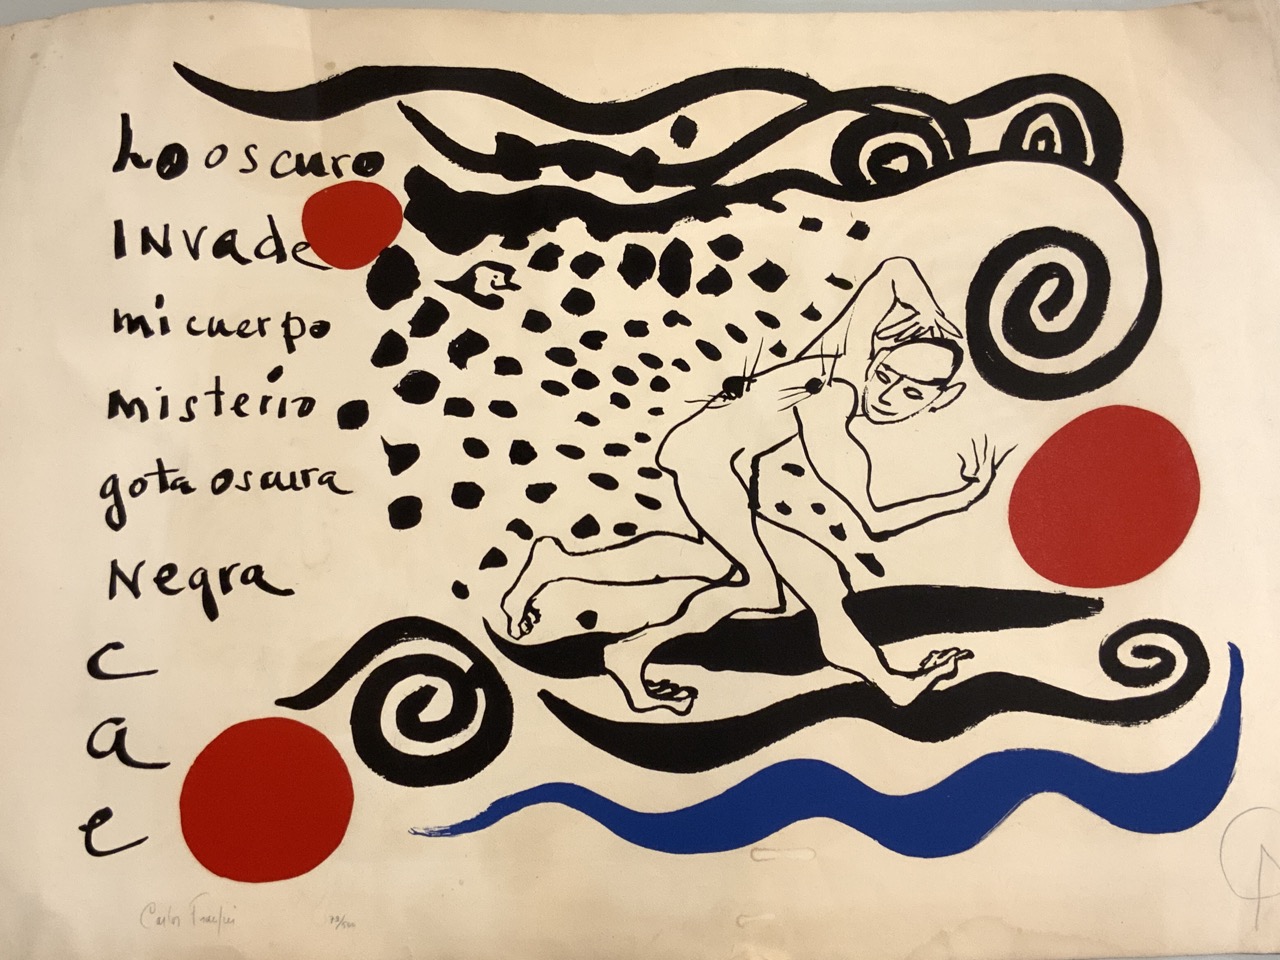 Lo oscuro
INvade
mi cuerpo
misterio
gota oscura
Negra
c
a
e
Carlos Franqui